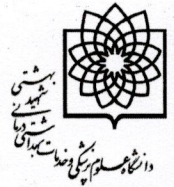 دانشگاه علوم پزشکی و خدمات بهداشتی
درمانی
شهید
بهشتی